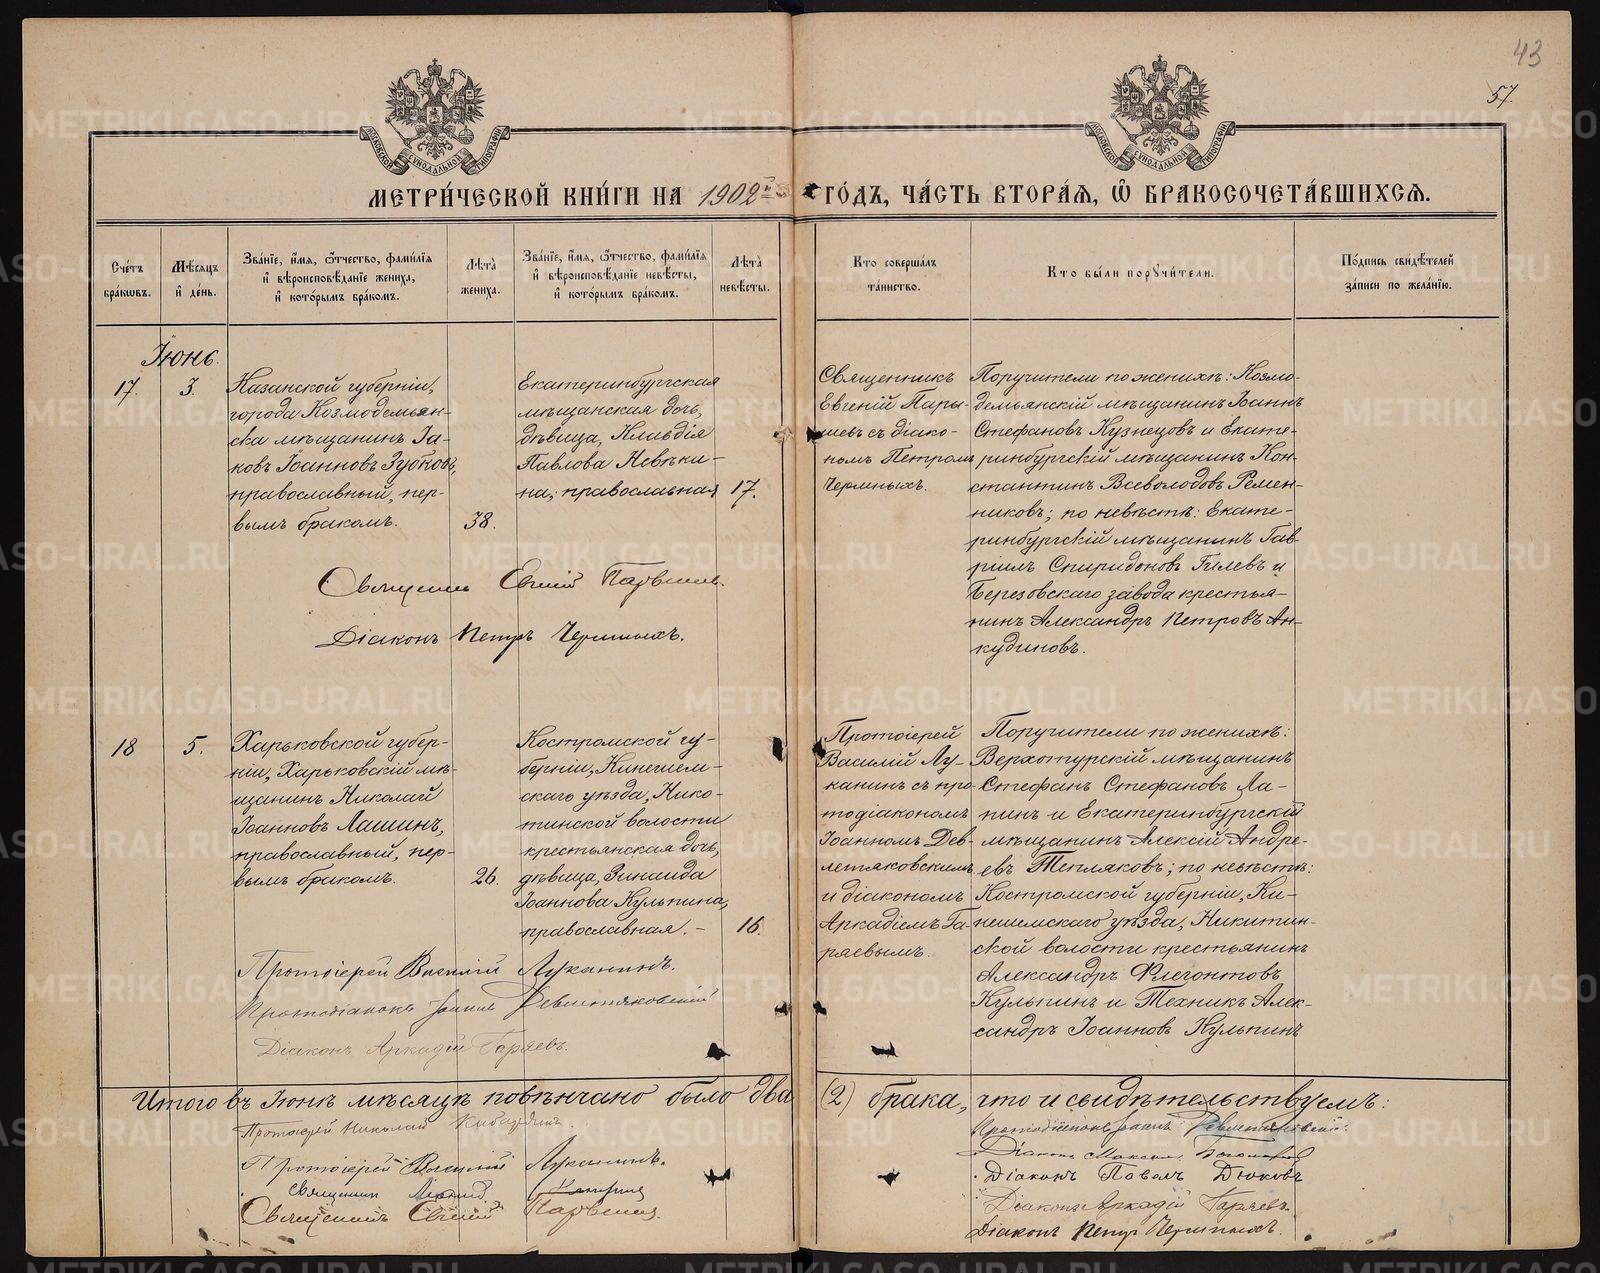 43
57.
МЕТРИ́ЧЕСКОЙ КНИ́ГИ НА 1902й ГО́ДЪ, ЧА́СТЬ ВТОРА́Я, Ѿ БРАКОСОЧЕТА́ВШИХСЯ.
Сче́тъ бра́кѡвъ.
Мѣ́сяцъ и҆ де́нь.
Зва́нїе, и҆́мя, ѻ҆́тчество, фами́лїя и҆ вѣроисповѣ́данїе жениха̀, и҆ кото́рымъ бра́комъ.
Лѣ́та жениха̀.
Зва́нїе, и҆́мя, ѻ҆́тчество, фами́лїя и҆ вѣроисповѣ́данїе невѣ́сты, и҆ кото́рымъ бра́комъ.
Лѣ́та невѣ́сты.
Кто̀ соверша́лъ та́инство.
Кто̀ бы́ли порꙋчи́тели.
По́дпись свидѣ́телей за́писи по жела́нїю.
Іюнь.
17.
3.
Казанской губерніи,
города Козмодемьян-
ска мѣщанинъ Іа-
ковъ Іоанновъ Зубковъ,
православный, пер-
вымъ бракомъ.
38.
Екатеринбургская
мѣщанская дочь,
дѣвица, Клавдія
Павлова Невѣки-
на, православная
17.
Священникъ
Евгеній Пары-
шевъ съ діако-
номъ Петромъ
Чермныхъ.
Поручители по женихѣ: Козмо-
демьянскій мѣщанинъ Іоаннъ
Стефановъ Кузнецовъ и Екате-
ринбургскій мѣщанинъ Кон-
стантинъ Всеволодовъ Ремен-
никовъ; по невѣстѣ: Екате-
ринбургскій мѣщанинъ Гав-
ріилъ Спиридоновъ Гилевъ и
Березовскаго завода крестья-
нинъ Александръ Петровъ Ан-
кудиновъ.
Священникъ Евгеній Парышевъ.
Діаконъ Петръ Чермныхъ.
18
5.
Харьковской губер-
ніи, Харьковскій мѣ-
щанинъ Николай
Іоанновъ Лашинъ,
православный, пер-
вымъ бракомъ.
26.
Костромской гу-
берніи, Кинешем-
скаго уѣзда, Нико-
тинской волости
крестьянская дочь,
дѣвица, Зинаида
Іоаннова Кульпина,
православная. -
16.
Протоіерей
Василій Лу-
канинъ съ про-
тодіакономъ
Іоанномъ Дев-
летяковскимъ
и діакономъ
Аркадіемъ Га-
ряевымъ.
Поручители по женихѣ:
Верхотурскій мѣщанинъ
Стефанъ Стефановъ Ла-
пинъ и Екатеринбургскій
мѣщанинъ Алексій Андре-
евъ Тепляковъ; по невѣстѣ:
Костромской губерніи, Ки-
нешемскаго уѣзда, Никитин-
ской волости крестьянинъ
Александръ Флегонтовъ
Кульпинъ и Техникъ Алек-
сандръ Іоанновъ Кульпинъ
Протоіерей Василій Луканинъ.
Протодіаконъ Іоаннъ Девлетяковскій
Діаконъ Аркадій Гаряевъ.
Итого въ Іюнѣ мѣсяцѣ повѣнчано было два (2) брака, что и свидѣтельствуемъ:
Протоіерей Николай
Протоіерей Василій Луканинъ.
Священникъ
Священникъ Евгеній Парышевъ.
Протодіаконъ Іоаннъ Девлетяковскій.
Діаконъ
Діаконъ Павелъ Дюковъ
Діаконъ Аркадій Гаряевъ.
Діаконъ Петръ Чермныхъ.
METRIKI.GASO-URAL.RU